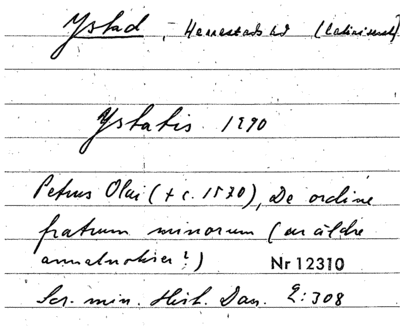 Ystad, Herrestads hd (latiniserat)
Ystatis 1290
Petrus Olai (+ c. 1570), De ordine
fratrum minorum (ur äldre
annalnotiser?) Nr 12310
Scr. min. Hist. Dan. 2:308